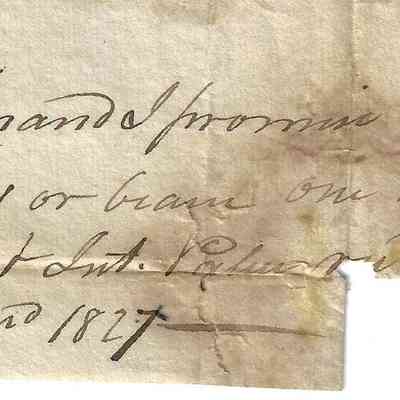 and I promis
or bearer one
Int. Value r
1827